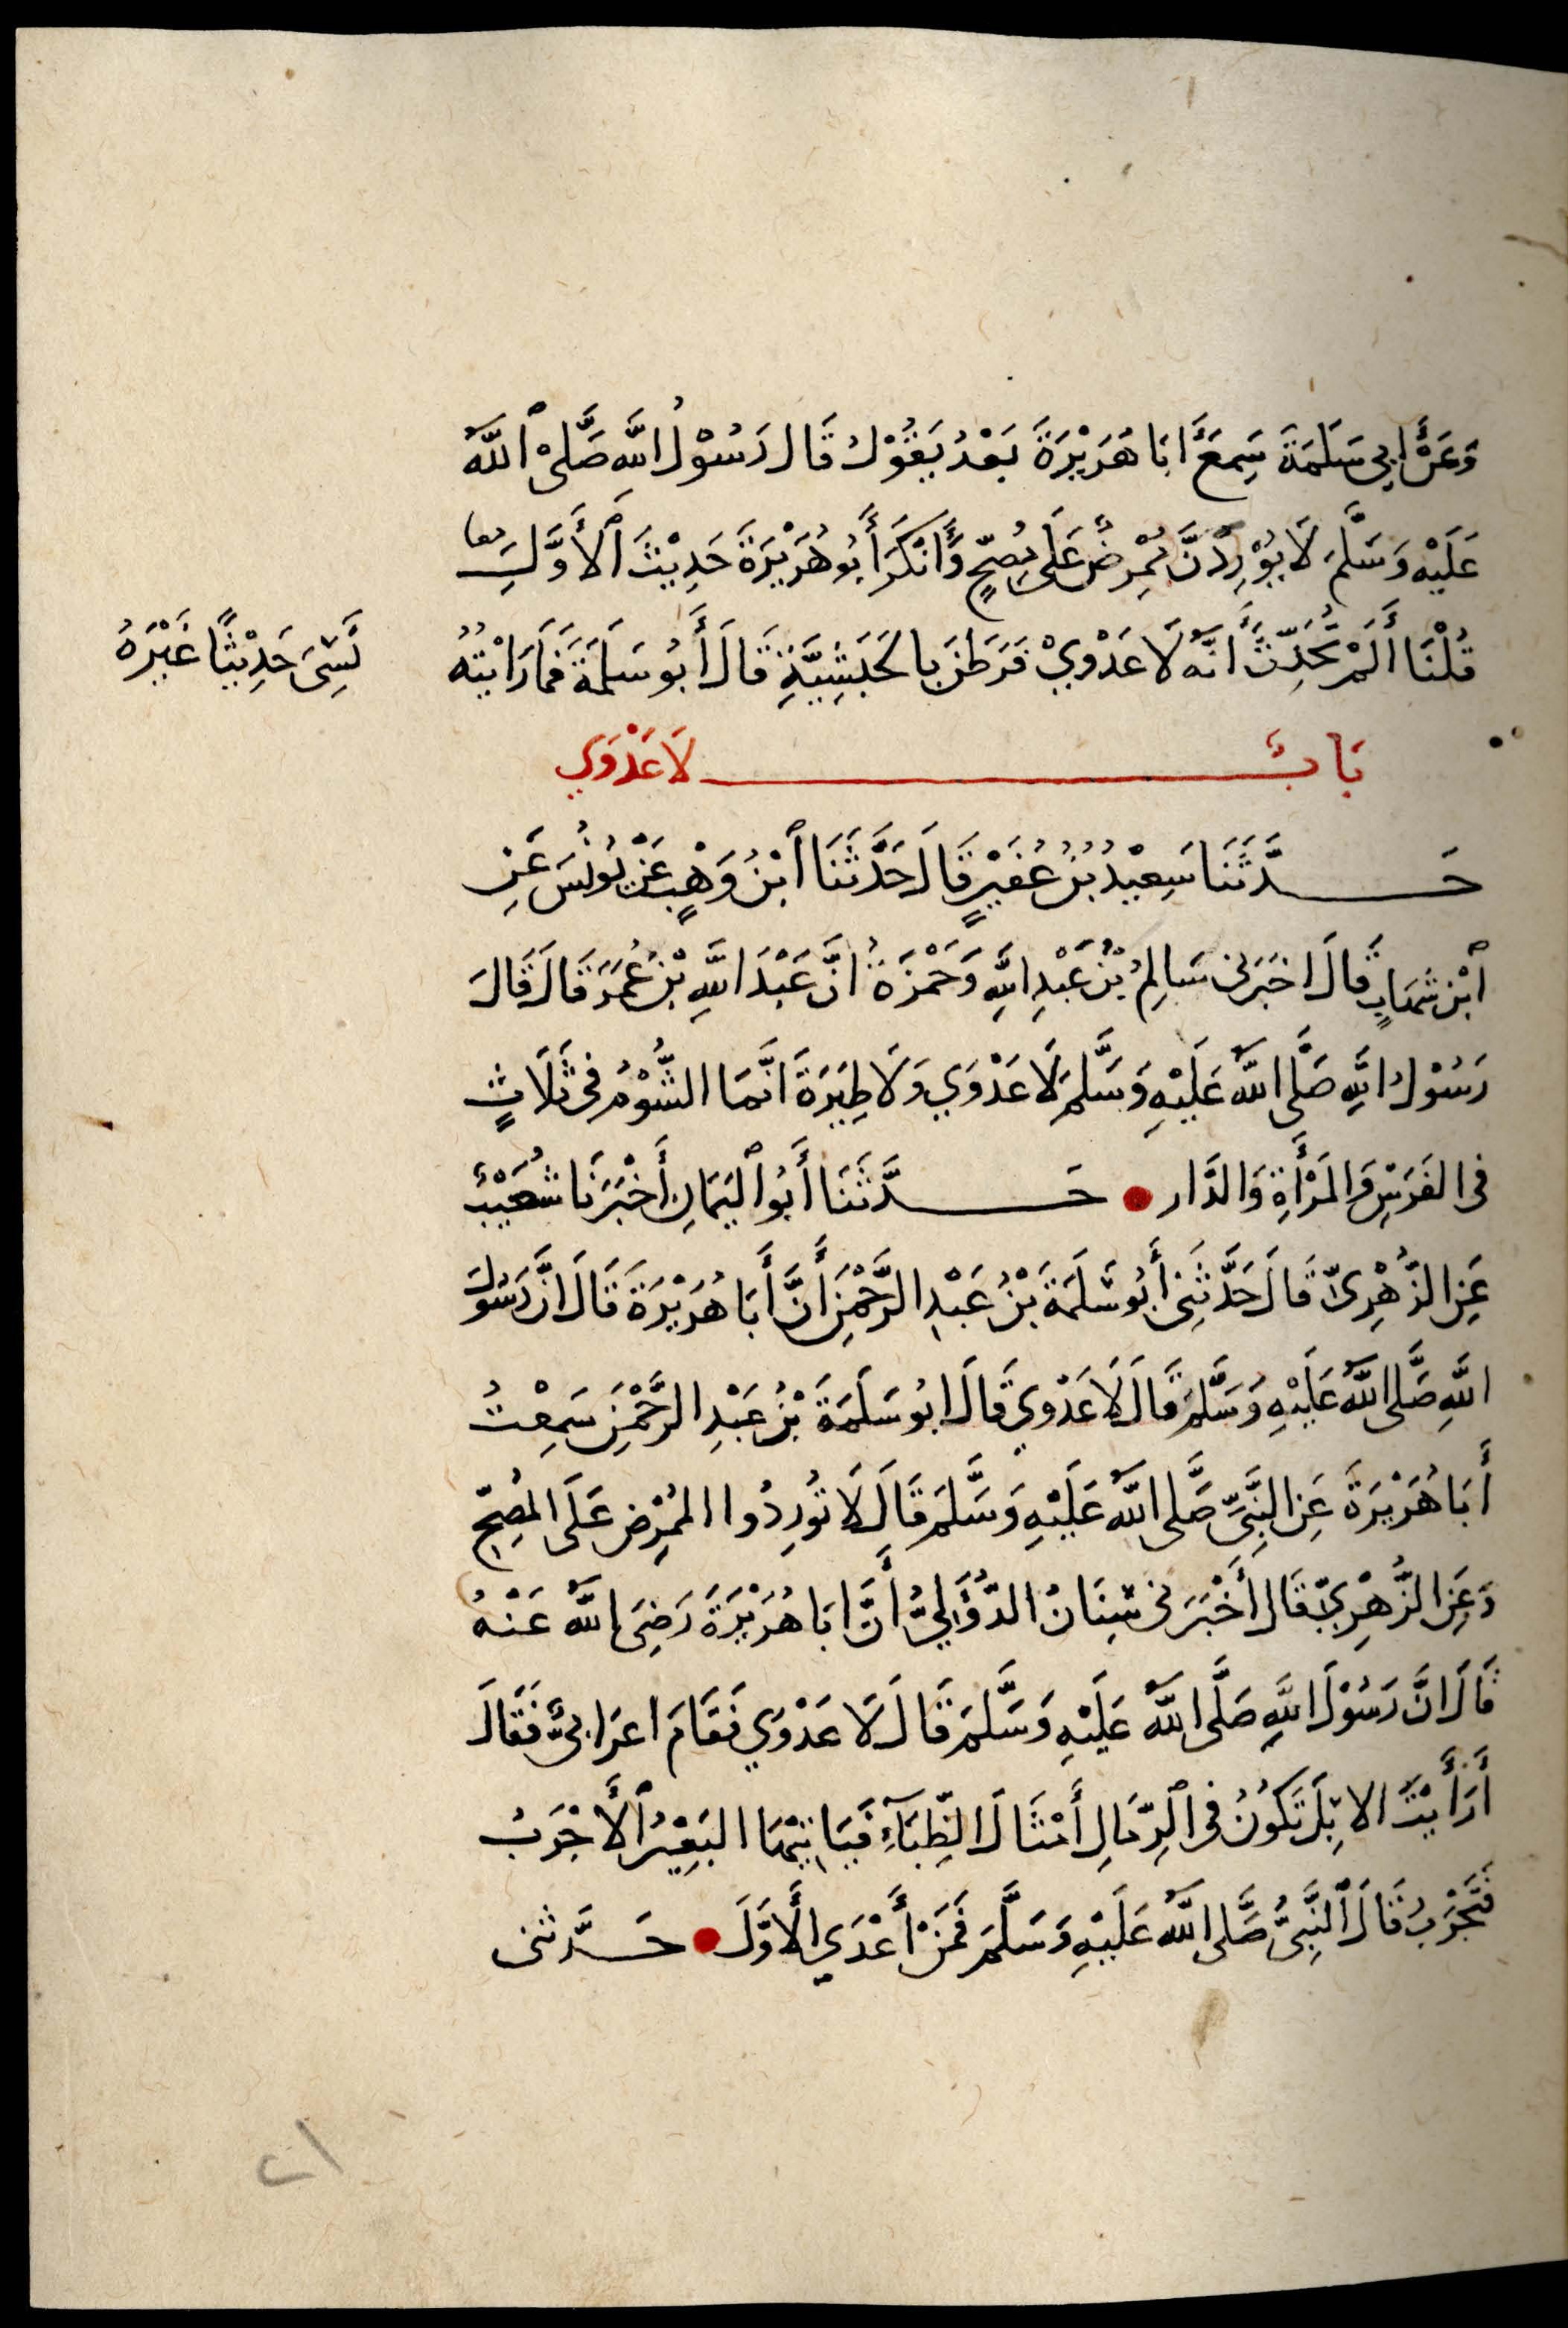 وَعَنْ أَبِي سَلَمَةَ سَمِعَ أَبَا هُرَيْرَةَ بَعْدُ يَقُوْلُ قَالَ رَسُوْلُ اللَّهِ صَلَّى ٱللَّهُ
عَلَيْهِ وَسَلَّمَ لَا يُوْرِدَنَّ مُمْرِضٌ عَلَى مُصِحٍّ وَأَنْكَرَ أَبُو هُرَيْرَةَ حَدِيْثَ ٱلْأَوَّلِ
قُلْنَا أَلَمْ تُحَدِّثْ أَنَّهُ لَا عَدْوَيْ فَرَطَنَ بِالحَبَشِيَّةِ قَالَ أَبُو سَلَمَةَ فَمَا رَأَيْتُهُ
نَسِيَ حَدِيْثًا غَيْرَهُ
بَابُ لَا عَدْوَي
حَدَّثَنَا سَعِيْدُ بْنُ عُفَيْرٍ قَالَ حَدَّثَنَا ٱبْنُ وَهْبٍ عَنْ يُونُسَ عَنِ
ٱبْنِ شهَابٍ قَالَ اخبَرَنى سَالِمُ بْنُ عَبْدِ اللَّهِ وَحَمْزَةُ انَّ عَبْدَ اللَّهِ بْنَ عُمَرَ قَالَ قَالَ
رَسُوْلُ اللَّهِ صَلَّى اللَّهُ عَلَيْهِ وَسَلَّمَ لَا عَدْوَي وَلَا طِيَرَةَ انَّمَا الشُّوْمُ فى ثَلَاثٍ
فى الفَرَسِ وَالمَرْأَةِ وَالدَّار حَدَّثَنَا أَبُو ٱليَمَانِ أَخْبَرَنَا شُعَيْبٌ
عَنِ الزُّهْرِىِّ قَالَ حَدَّثَنِى أَبُو سَلَمَةَ بْنُ عَبْدِ الرَّحْمٰنِ أَنَّ أَبَا هُرَيْرَةَ قَالَ انَّ رَسُولَ
اللَّهِ صَلَّى اللَّهُ عَلَيْهِ وَسَلَّمَ قَالَ لَا عَدْوَي قَالَ ابُو سَلَمَةَ بْنُ عَبْدِ الرَّحْمٰنِ سَمِعْتُ
أَبَا هُرَيْرَةَ عَنِ النَّبِىِّ صَلَّى اللَّهُ عَلَيْهِ وَسَلَّمَ قَالَ لَا تُورِدُوا المُمْرِضَ عَلَى المُصِحِّ
وَعَنِ الزُّهْرِيِّ قَالَ أَخْبَرَنى سِنَانُ الدُّؤَلِيُّ أَنَّ ابَا هُرَيْرَةَ رَضِىَ اللَّهُ عَنْهُ
قَالَ انَّ رَسُوْلَ اللَّهِ صَلَّى اللَّهُ عَلَيْهِ وَسَلَّمَ قَالَ لَا عَدْوَي فَقَامَ اعرَابىٌّ فَقَالَ
أَرَأَيْتَ الابِلَ تَكُوْنُ فى ٱلرِّمَالِ أَمْثَالَ الظِّبَآءِ فَيَاتِيْهَا البَعِيْرُ ٱلْأَجْرَبُ
فَتَجْرَبُ قَالَ ٱلنَّبِىُّ صَلَّى اللَّهُ عَلَيْهِ وَسَلَّمَ فَمَنْ أَعْدَي الأَوَّلَ حَدَّثنى
٢١